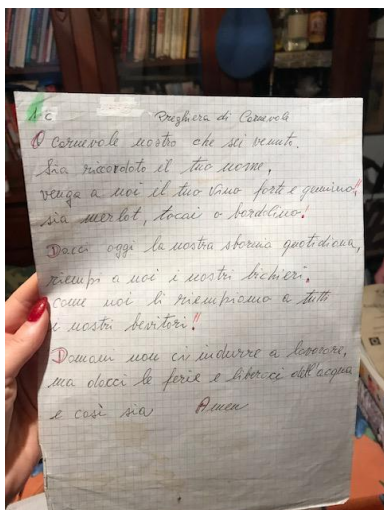 1c
Preghiera di Carnevale
O carnevale nostro che sei venuto.
Sia ricordato il tuo nome,
venga a noi il tuo vino forte e genuino!!
sia merlot, tocai o bardolino!
Dacci oggi la nostra sbornia quotidiana,
riempi a noi i nostri bichieri.
come noi li riempiamo a tutti
i nostri bevitori!!
Domani non ci indurre a lavorare,
ma dacci le ferie e liberaci dell'acqua
e così sia Amen